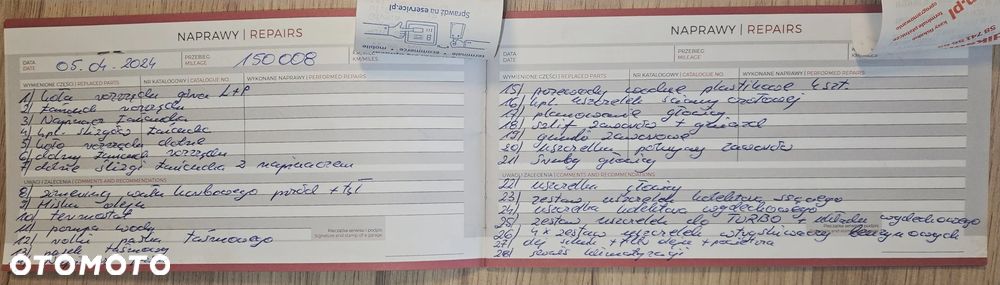 NAPRAWY | REPAIRS
DATA
DATE
05.04.2024
PRZEBIEG
MILEAGE
150008
KM/MILES
WYMIENIONE CZĘŚCI | REPLACED PARTS
NR KATALOGOWY | CATALOGUE NO.
WYKONANE NAPRAWY | PERFORMED REPAIRS
1) koła rozrządu górne L+P
2) Łańcuch rozrządu
3) Napinacz Łańcucha
4) kpl. ślizgów Łańcucha
5) koło rozrządu dolne
6) dolny Łańcuch rozrządu
7) dolne ślizgi Łańcucha z napinaczem
UWAGI I ZALECENIA | COMMENTS AND RECOMMENDATIONS
8) wału korbowego przód + tył
9) Miska oleju
10) termostat
11) pompa wody
12) rolki paska
Pieczątka serwisu i podpis
Signature and stamp of a garage
OTOMOTO
Sprawdź na eservice.pl
NAPRAWY | REPAIRS
DATA
DATE
PRZEBIEG
MILEAGE
WYMIENIONE CZĘŚCI | REPLACED PARTS
NR KATALOGOWY | CATALOGUE NO.
WYKONANE NAPRAWY | PERFORMED REPAIRS
15) przewody wodne plastikowe 4 szt.
16) kpl. uszczelek ściany czołowej
17) planowanie głowicy
18) szlif zaworów + gniazd
19)
20) uszczelka pokrywy zaworów
21) śruby głowicy
UWAGI I ZALECENIA | COMMENTS AND RECOMMENDATIONS
22) uszczelka głowicy
23) zestaw uszczelek kolektora ssącego
24) uszczelka kolektora wydechowego
25) zestaw uszczelek do TURBO i układu wydechowego
26) 4x zestaw uszczelek wtryskiwaczy benzynowych
27) olej silnik + filtr oleju + powietrza
28) serwis klimatyzacji
Pieczątka serwisu i podpis
OTOMOTO